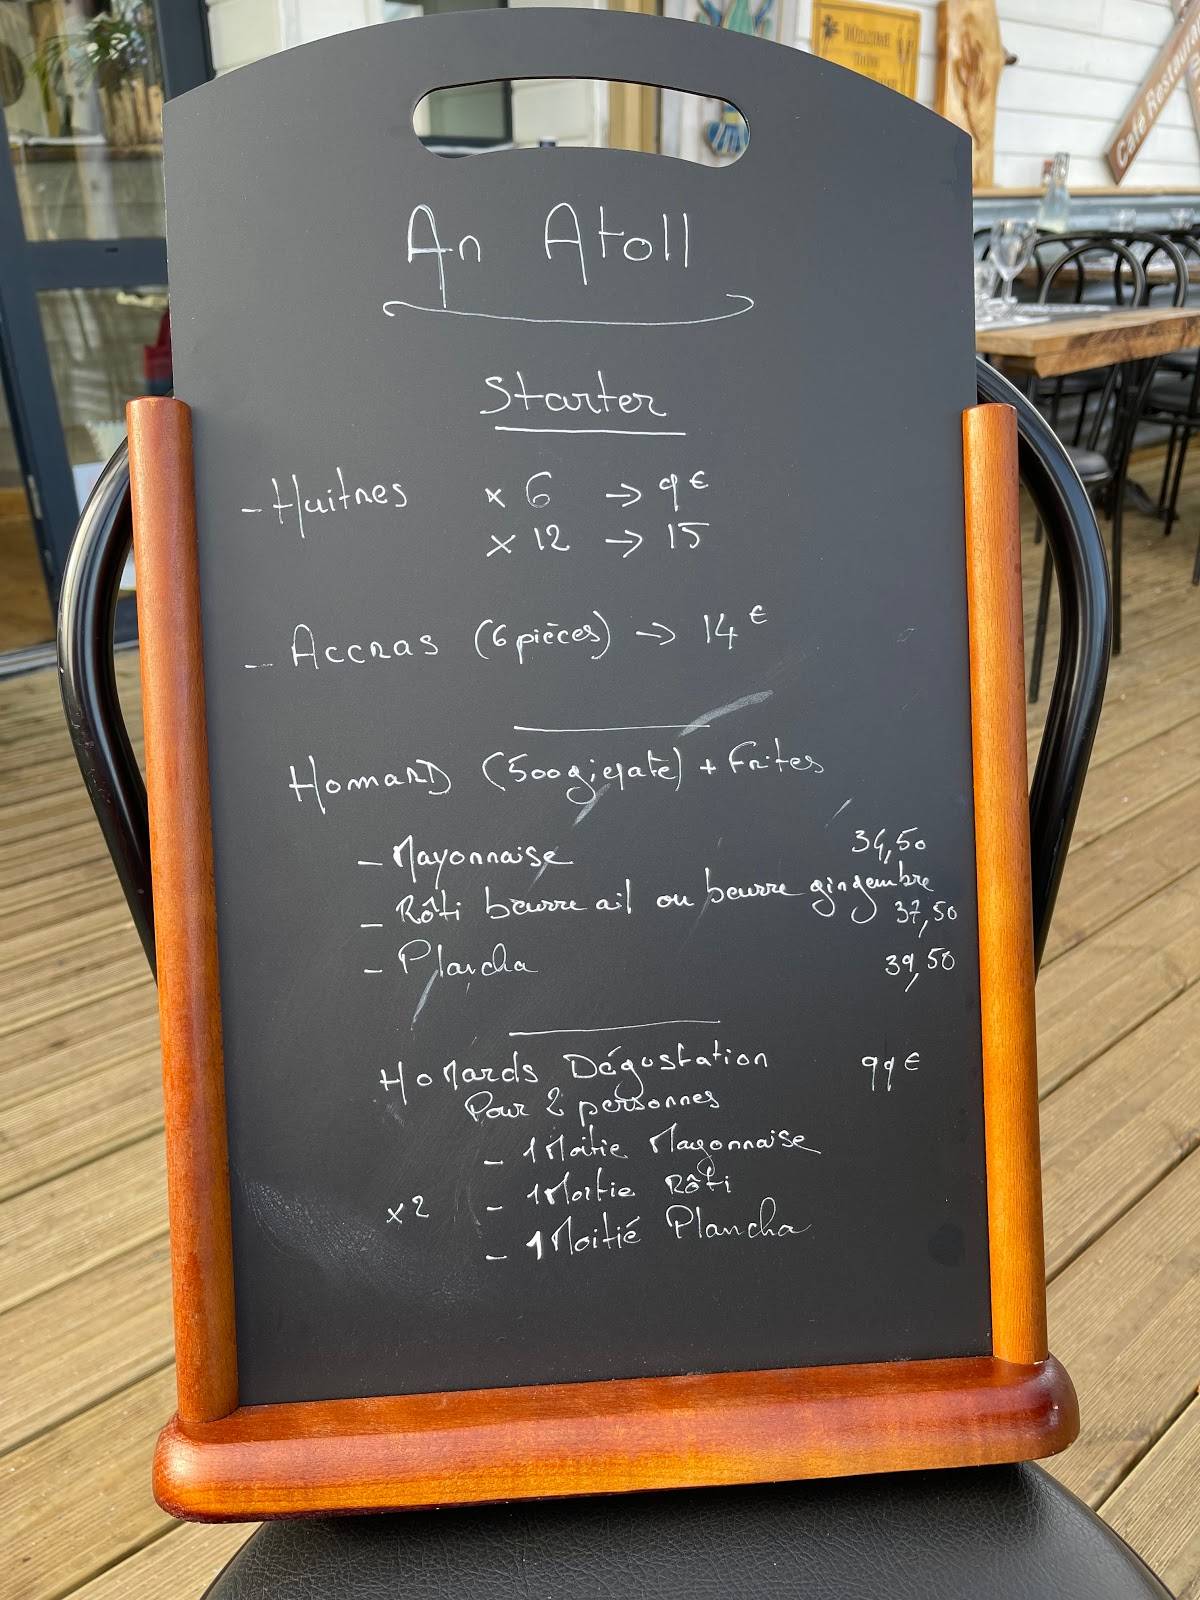 An Atoll
Starter
- Huitres x 6 → 9€
x 12 → 15
- Accras (6 pièces) → 14€
Homard (500g/epate) + Frites
- Mayonnaise 34,50
- Rôti beurre ail ou beurre gingembre
37,50
- Plancha 39,50
Homards Dégustation 99€
Pour 2 personnes
- 1 Moitie Mayonnaise
x2 - 1 Moitie Rôti
- 1 Moitié Plancha
Café Restaurant